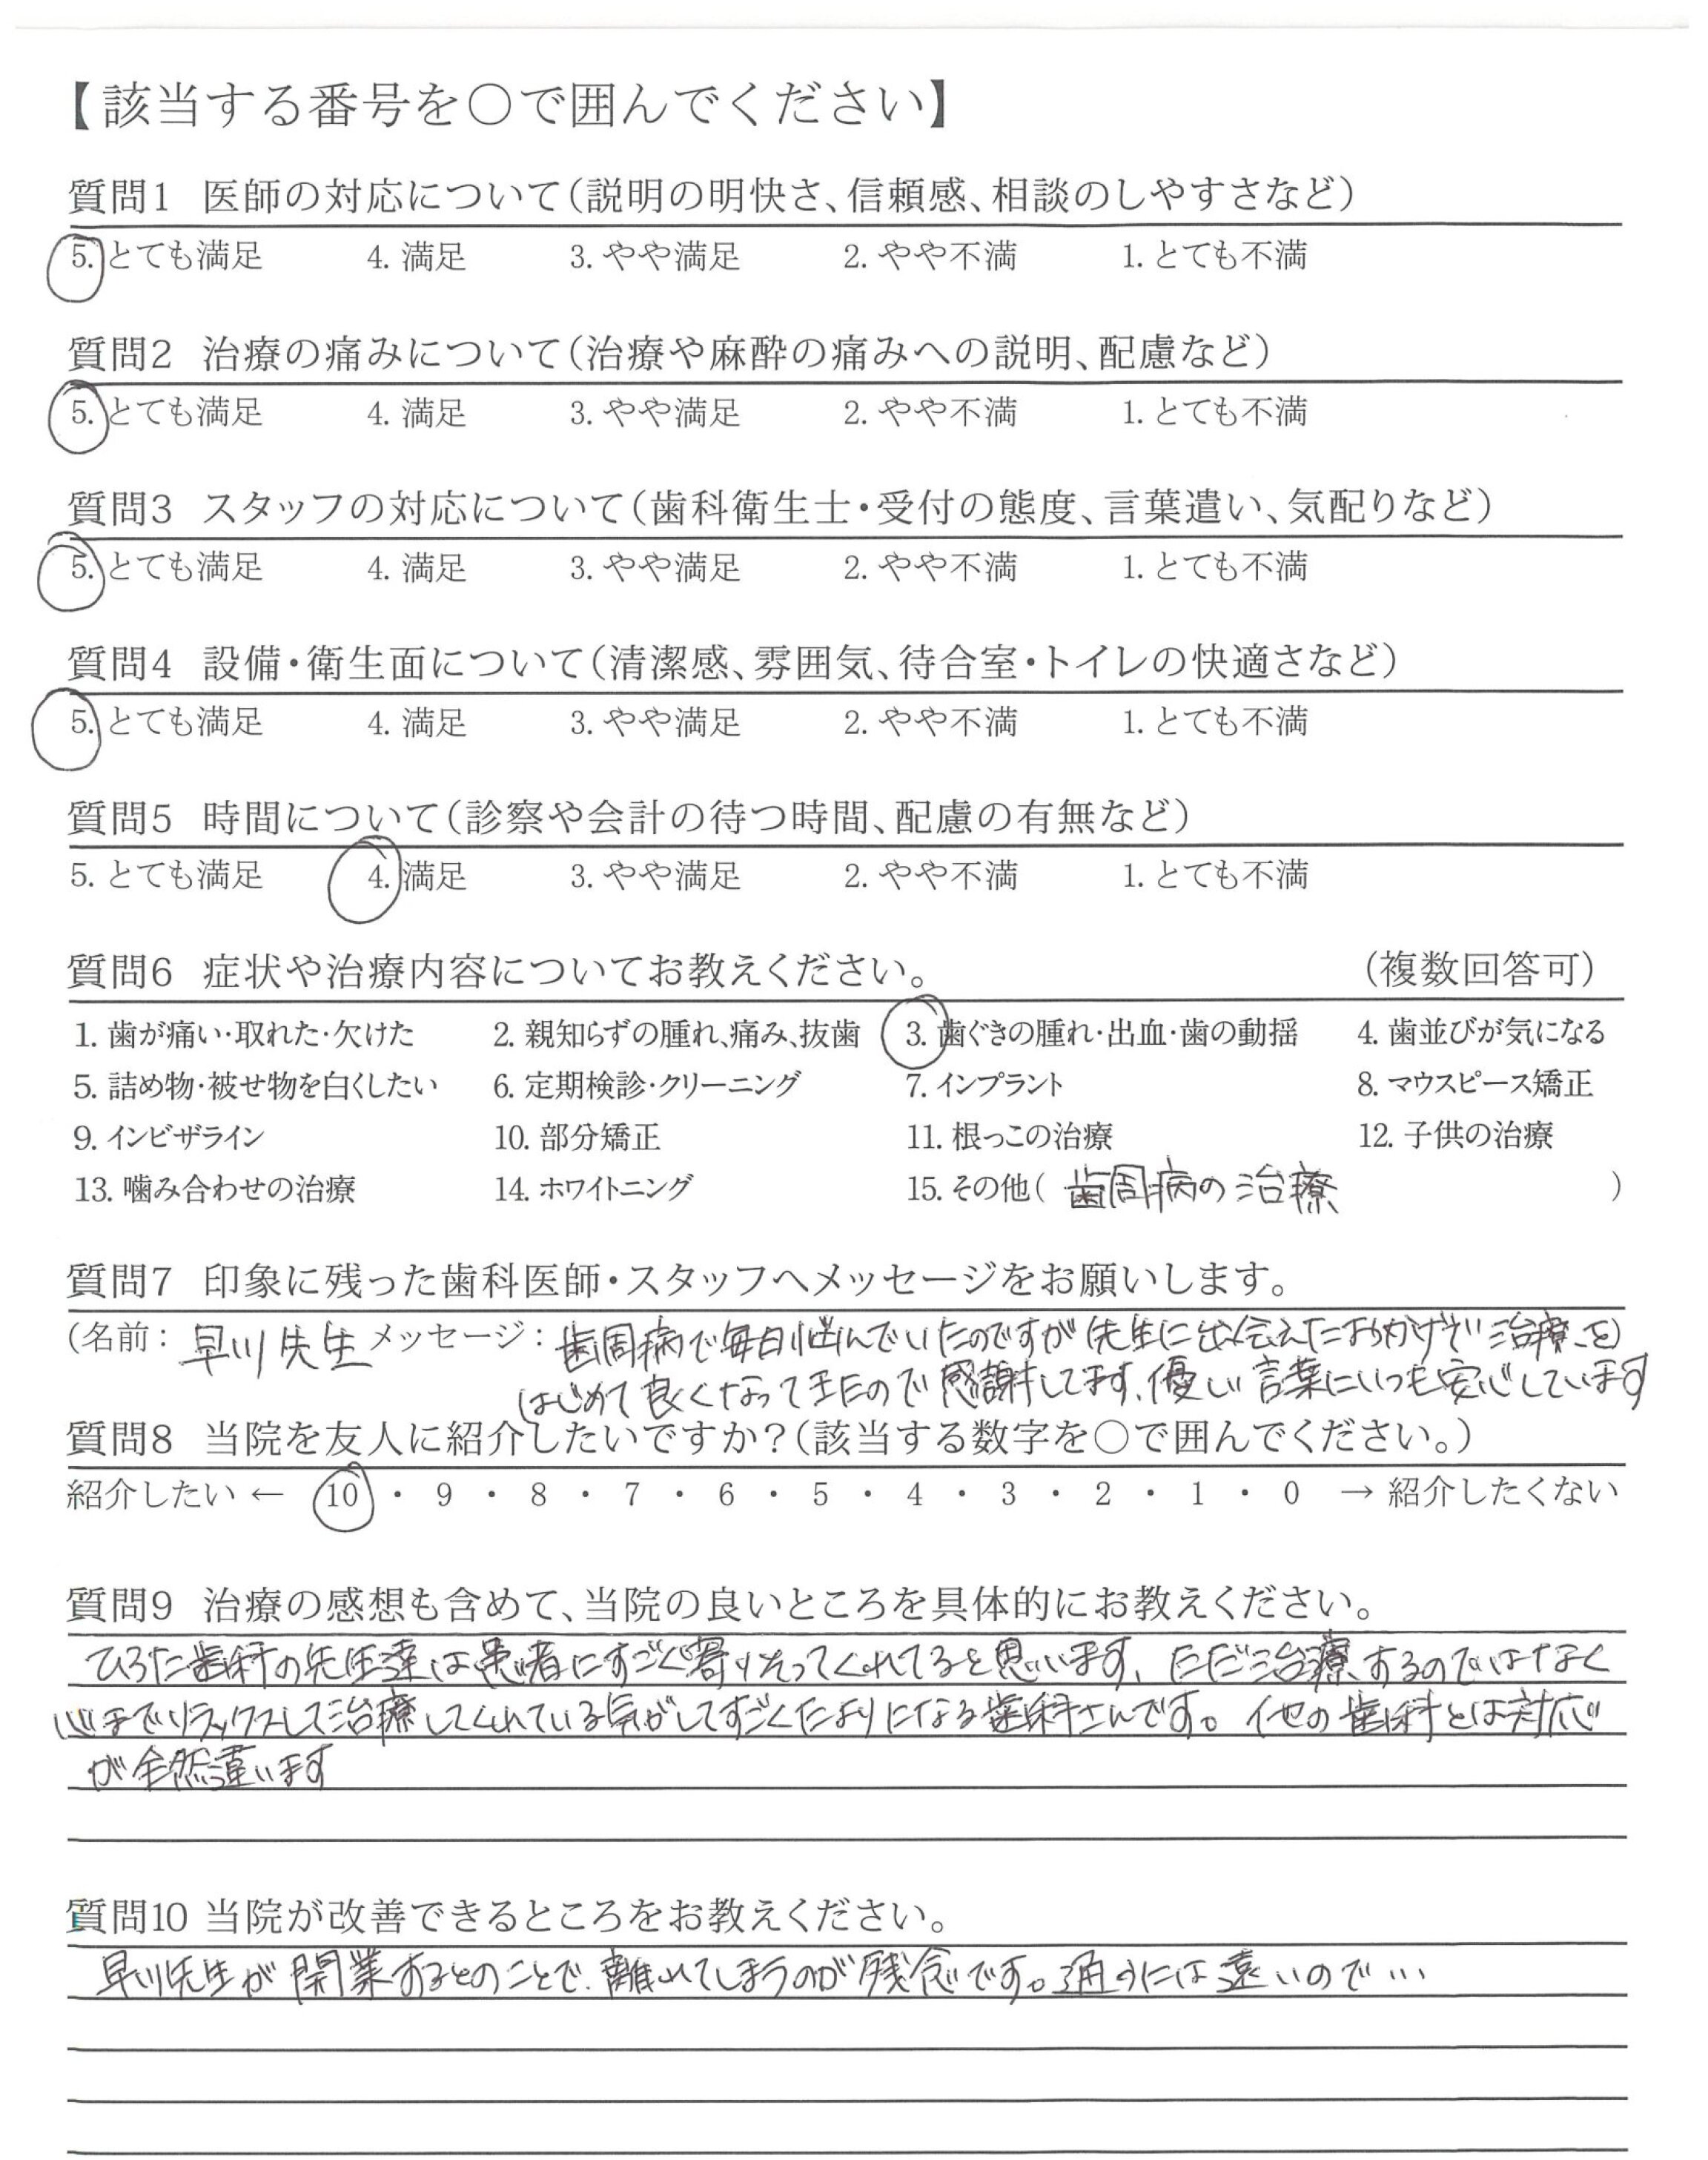 【該当する番号を○で囲んでください】
質問1 医師の対応について(説明の明快さ、信頼感、相談のしやすさなど)
5. とても満足 4. 満足 3. やや満足 2. やや不満 1. とても不満
質問2 治療の痛みについて(治療や麻酔の痛みへの説明、配慮など)
5. とても満足 4. 満足 3. やや満足 2. やや不満 1. とても不満
質問3 スタッフの対応について(歯科衛生士・受付の態度、言葉遣い、気配りなど)
5. とても満足 4. 満足 3. やや満足 2. やや不満 1. とても不満
質問4 設備・衛生面について(清潔感、雰囲気、待合室・トイレの快適さなど)
5. とても満足 4. 満足 3. やや満足 2. やや不満 1. とても不満
質問5 時間について(診察や会計の待つ時間、配慮の有無など)
5. とても満足 4. 満足 3. やや満足 2. やや不満 1. とても不満
質問6 症状や治療内容についてお教えください。 (複数回答可)
1. 歯が痛い・取れた・欠けた 2. 親知らずの腫れ、痛み、抜歯 3. 歯ぐきの腫れ・出血・歯の動揺 4. 歯並びが気になる
5. 詰め物・被せ物を白くしたい 6. 定期検診・クリーニング 7. インプラント 8. マウスピース矯正
9. インビザライン 10. 部分矯正 11. 根っこの治療 12. 子供の治療
13. 噛み合わせの治療 14. ホワイトニング 15. その他( 歯周病の治療 )
質問7 印象に残った歯科医師・スタッフへメッセージをお願いします。
(名前: 早川先生 メッセージ: 歯周病で毎日悩んでいたのですが先生に出会えたおかげで治療を)
はじめて良くなってきたので感謝してます、優しい言葉にいつも安心しています
質問8 当院を友人に紹介したいですか?(該当する数字を○で囲んでください。)
紹介したい ← 10 ・ 9 ・ 8 ・ 7 ・ 6 ・ 5 ・ 4 ・ 3 ・ 2 ・ 1 ・ 0 → 紹介したくない
質問9 治療の感想も含めて、当院の良いところを具体的にお教えください。
ひろた歯科の先生達は患者にすごく寄りそってくれてると思います、ただ治療するのではなく
心までリラックスして治療してくれている気がしてすごくたよりになる歯科さんです。他の歯科とは対応
が全然違います
質問10 当院が改善できるところをお教えください。
早川先生が開業するとのことで、離れてしまうのが残念です。通うには遠いので…